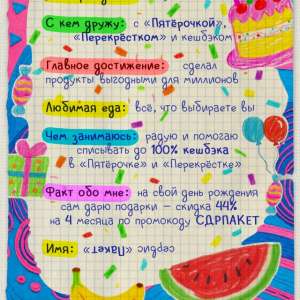 С кем дружу: с «Пятёрочкой»,
«Перекрёстком» и кешбэком
Главное достижение: сделал
продукты выгодными для миллионов
Любимая еда: всё, что выбираете вы
Чем занимаюсь: радую и помогаю
списывать до 100% кешбэка
в «Пятёрочке» и «Перекрёстке»
Факт обо мне: на свой день рождения
сам дарю подарки – скидка 44%
на 4 месяца по промокоду СДРПАКЕТ
Имя: сервис «Пакет»